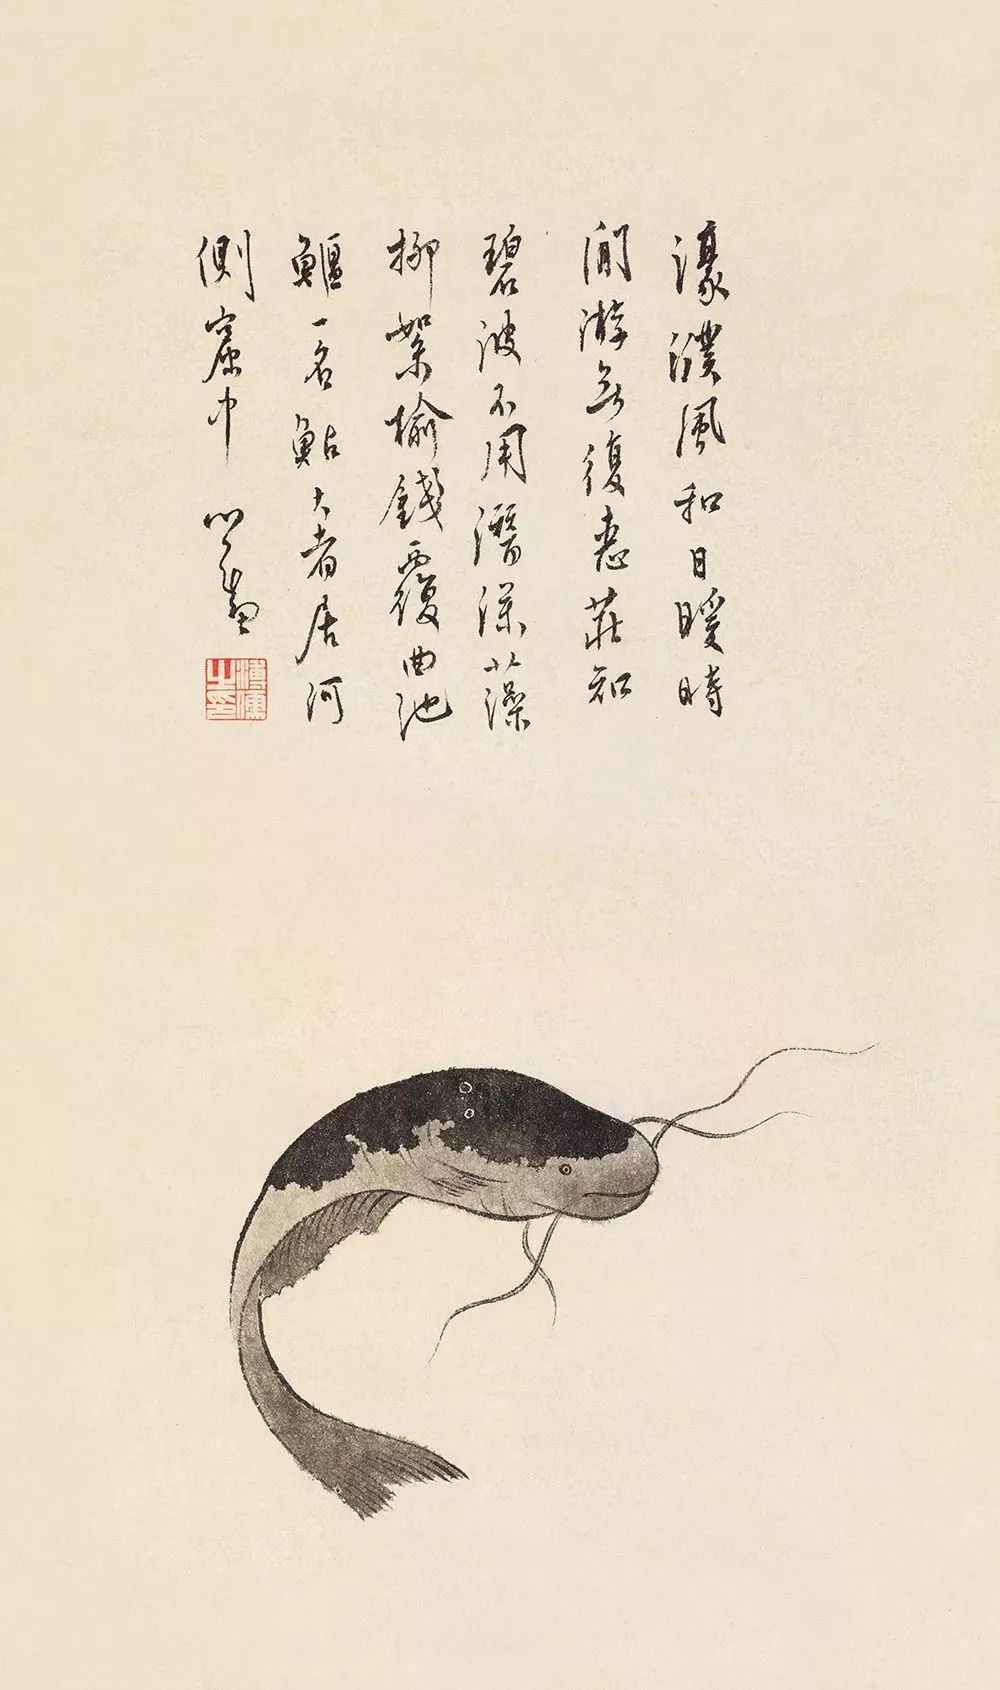 濠濮風和日暖時
閒游無復惠莊知
碧波不用潛深藻
柳絮榆錢覆曲池
鰋一名鮎大者居河
側窟中 心畬
溥儒之印